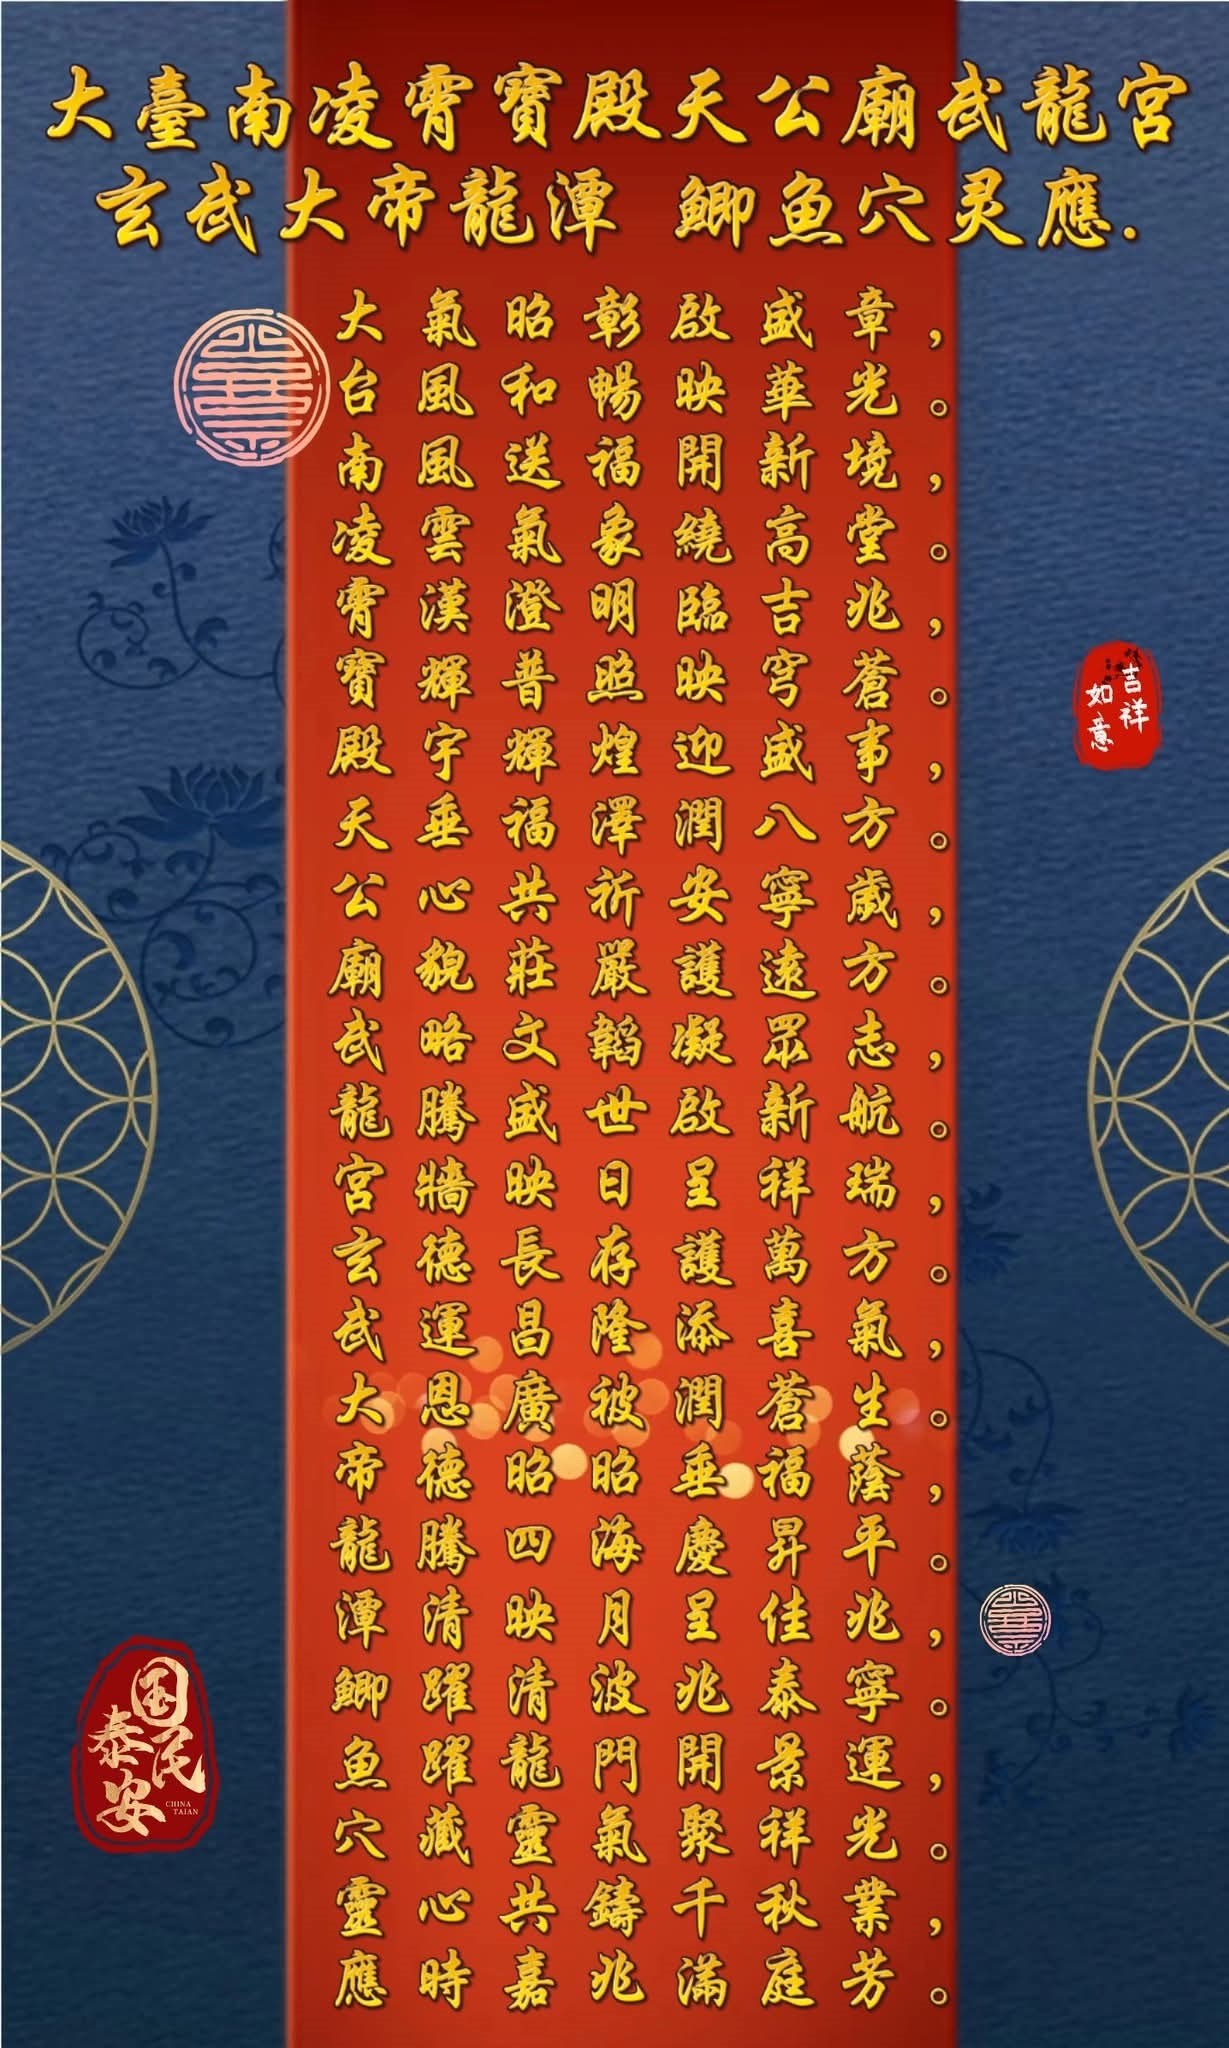 大臺南凌霄寶殿天公廟武龍宮
玄武大帝龍潭 鯽魚穴灵應.
大氣昭彰啟盛章，
台風和暢映華光。
南風送福開新境，
凌雲氣象繞高堂。
霄漢澄明臨吉兆，
寶輝普照映穹蒼。
殿宇輝煌迎盛事，
天垂福澤潤八方。
公心共祈安寧歲，
廟貌莊嚴護遠方。
武略文韜凝眾志，
龍騰盛世啟新航。
宮牆映日呈祥瑞，
玄德長存護萬方。
武運昌隆添喜氣，
大恩廣被潤蒼生。
帝德昭昭垂福蔭，
龍騰四海慶昇平。
潭清映月呈佳兆，
鯽躍清波兆泰寧。
魚躍龍門開景運，
穴藏靈氣聚祥光。
靈心共鑄千秋業，
應時嘉兆滿庭芳。
吉祥
如意
国民
泰安
CHINA
TAIAN